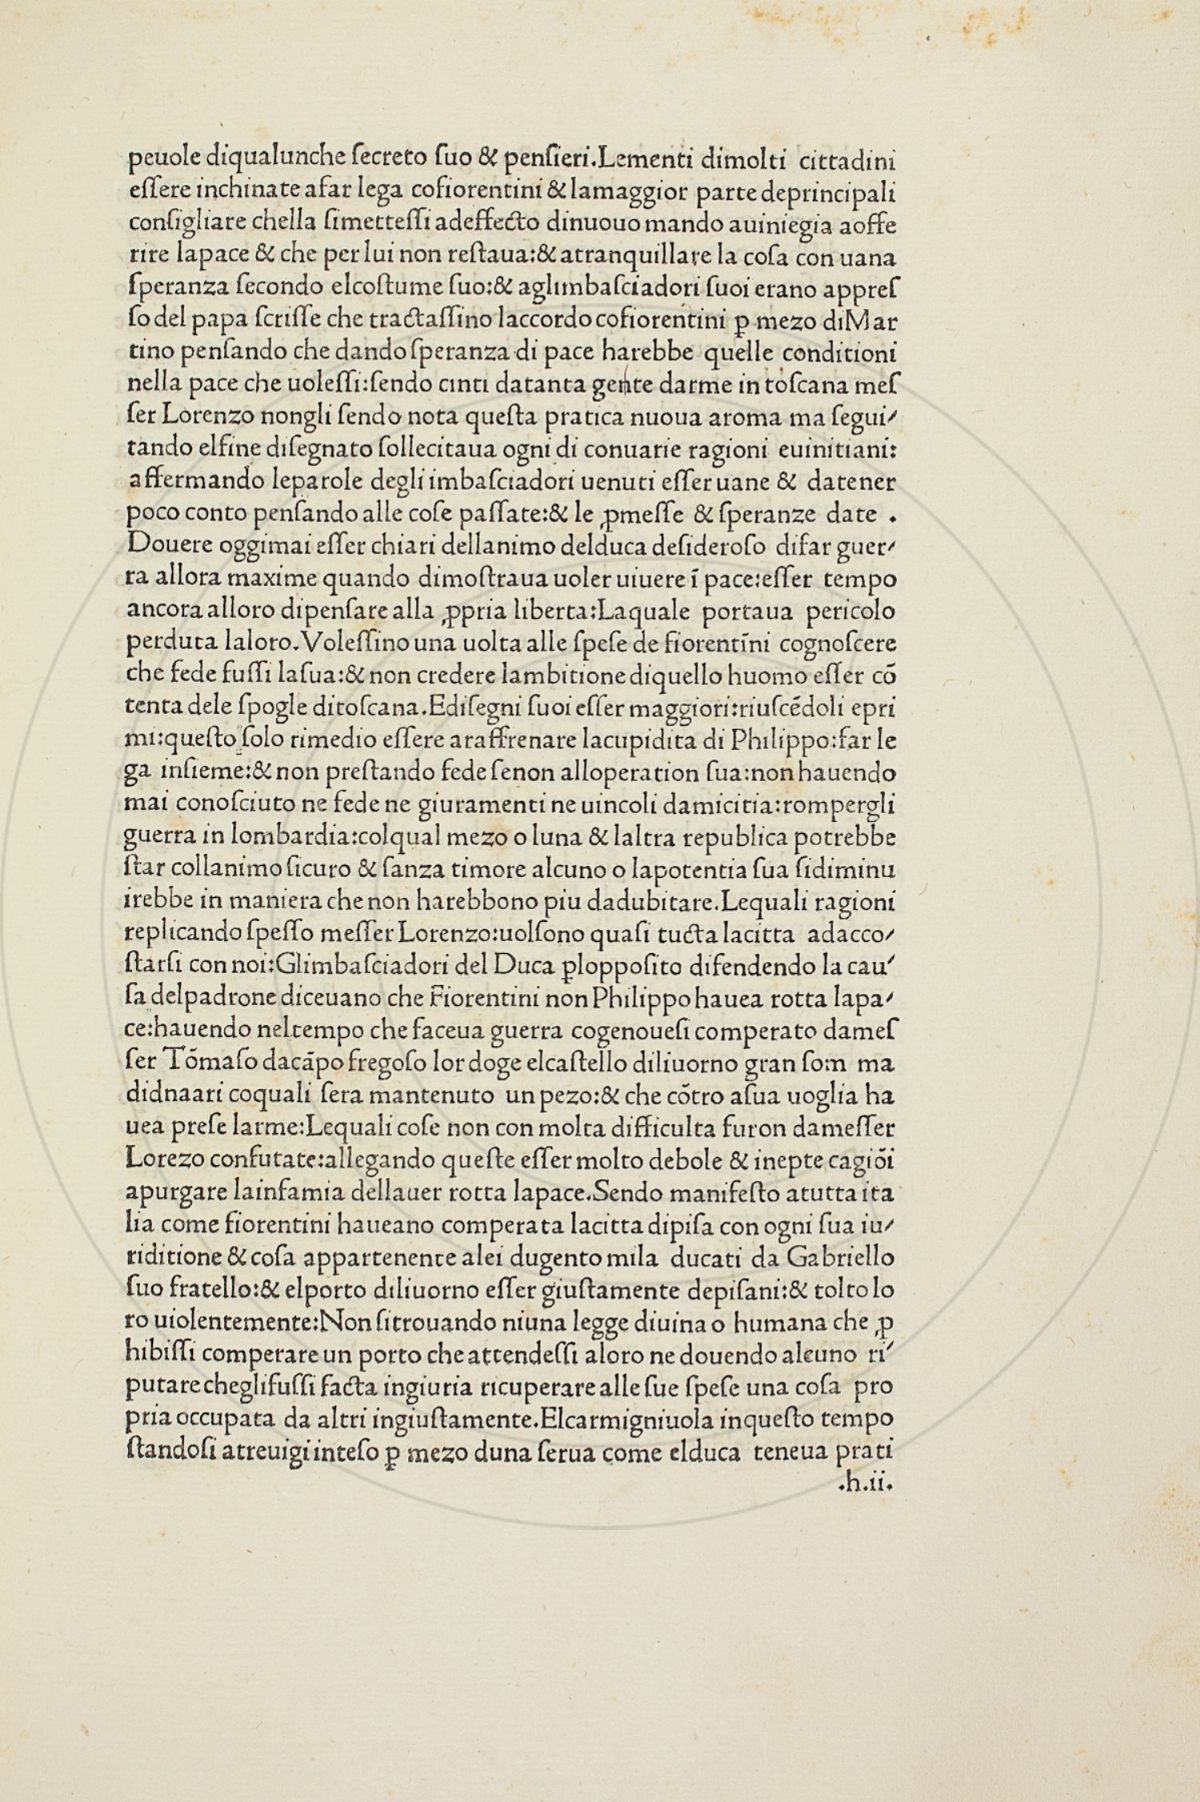 peuole diqualunche ſecreto ſuo & penſieri.Lementi dimolti cittadini
eſſere inchinate afar lega cofiorentini & lamaggior parte deprincipali
conſigliare chella ſimetteſſi adeffecto dinuouo mando auiniegia aoffe
rire lapace & che per lui non reſtaua:& atranquillare la coſa con uana
ſperanza ſecondo elcoſtume ſuo:& aglimbaſciadori ſuoi erano appreſ
ſo del papa ſcriſſe che tractaſſino laccordo cofiorentini ꝑ mezo diMar
tino penſando che dando ſperanza di pace harebbe quelle conditioni
nella pace che uoleſſi:ſendo cinti datanta gente darme in toſcana meſ
ſer Lorenzo nongli ſendo nota queſta pratica nuoua aroma ma ſegui⸗
tando elfine diſegnato ſollecitaua ogni di conuarie ragioni euinitiani:
affermando leparole degli imbaſciadori uenuti eſſer uane & datener
poco conto penſando alle coſe paſſate:& le ꝓmeſſe & ſperanze date .
Douere oggimai eſſer chiari dellanimo delduca deſideroſo difar guer⸗
ra allora maxime quando dimoſtraua uoler uiuere ī pace:eſſer tempo
ancora alloro dipenſare alla ꝓpria liberta:Laquale portaua pericolo
perduta laloro.Voleſſino una uolta alle ſpeſe de fiorentīni cognoſcere
che fede fuſſi laſua:& non credere lambitione diquello huomo eſſer cō
tenta dele ſpogle ditoſcana.Ediſegni ſuoi eſſer maggiori:riuſcēdoli epri
mi:queſto ſolo rimedio eſſere araffrenare lacupidita di Philippo:far le
ga inſieme:& non preſtando fede ſenon alloperation ſua:non hauendo
mai conoſciuto ne fede ne giuramenti ne uincoli damicitia:rompergli
guerra in lombardia:colqual mezo o luna & laltra republica potrebbe
ſtar collanimo ſicuro & ſanza timore alcuno o lapotentia ſua ſidiminu
irebbe in maniera che non harebbono piu dadubitare.Lequali ragioni
replicando ſpeſſo meſſer Lorenzo:uolſono quaſi tucta lacitta adacco⸗
ſtarſi con noi:Glimbaſciadori del Duca ꝑloppoſito difendendo la cau⸗
ſa delpadrone diceuano che Fiorentini non Philippo hauea rotta lapa⸗
ce:hauendo neltempo che faceua guerra cogenoueſi comperato dameſ
ſer Tōmaſo dacāpo fregoſo lor doge elcaſtello diliuorno gran ſom ma
didnaari coquali ſera mantenuto un pezo:& che cōtro aſua uoglia ha
uea preſe larme:Lequali coſe non con molta difficulta furon dameſſer
Lorezo confutate:allegando queſte eſſer molto debole & inepte cagiōi
apurgare lainfamia dellauer rotta lapace.Sendo manifeſto atutta ita
lia come fiorentini haueano comperata lacitta dipiſa con ogni ſua iu⸗
riditione & coſa appartenente alei dugento mila ducati da Gabriello
ſuo fratello:& elporto diliuorno eſſer giuſtamente depiſani:& tolto lo
ro uiolentemente:Non ſitrouando niuna legge diuina o humana che ꝓ
hibiſſi comperare un porto che attendeſſi aloro ne douendo alcuno ri⸗
putare cheglifuſſi facta ingiuria ricuperare alle ſue ſpeſe una coſa pro
pria occupata da altri ingiuſtamente.Elcarmigniuola inqueſto tempo
ſtandoſi atreuigi inteſo ꝑ mezo duna ſerua come elduca teneua prati
.h.ii.